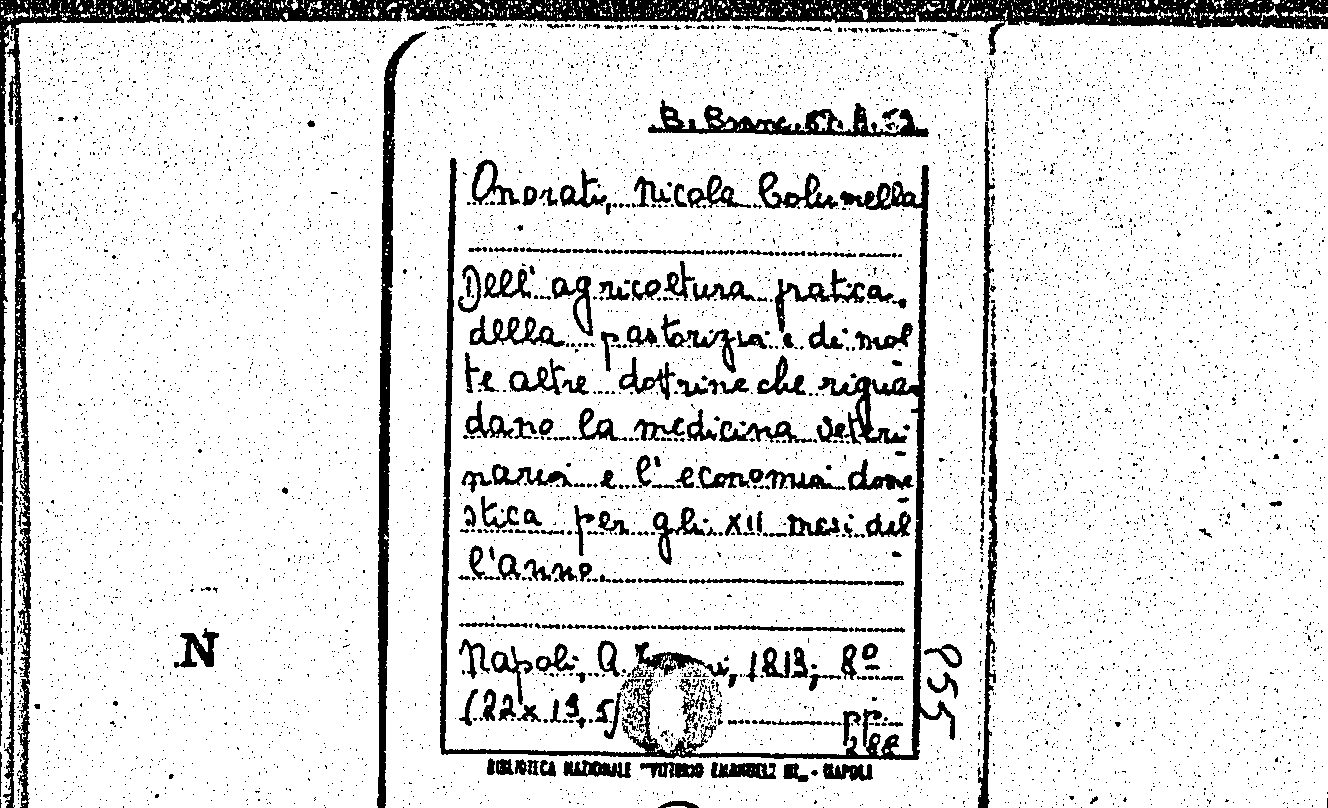 B. Branc. 67. A. 52
Onorati, Nicola Columella
Dell' agricoltura pratica,
della pastorizia e di mol
te altre dottrine che riguar
dano la medicina veteri-
naria e l' economia dome
stica per gli XII mesi del
l'anno.
Napoli, A. 1813; 8º
(22x13,5)
pp.
288
P55
BIBLIOTECA NAZIONALE "VITTORIO EMANUELE III„ - NAPOLI
N